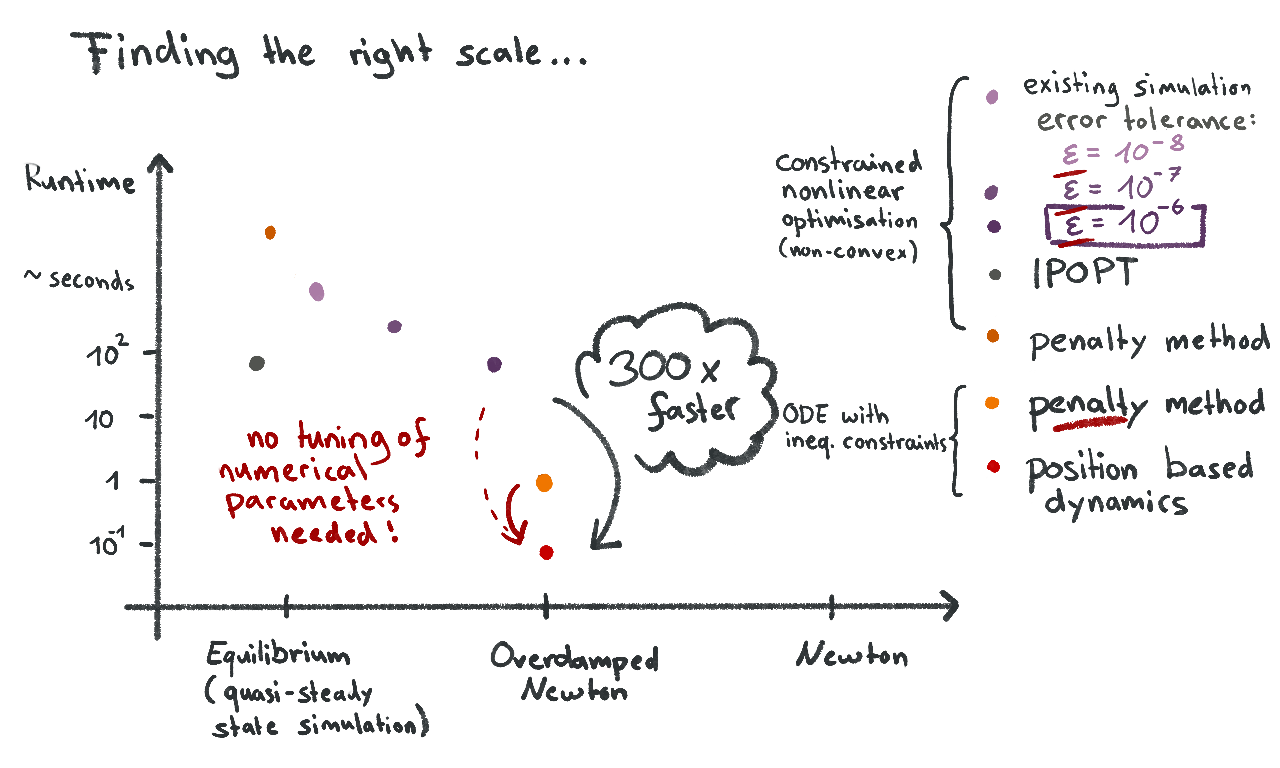 Finding the right scale...
Runtime
~ seconds
10²
10
1
10⁻¹
no tuning of
numerical
parameters
needed!
300 x
faster
Equilibrium
(quasi-steady
state simulation)
Overdamped
Newton
Newton
constrained
nonlinear
optimisation
(non-convex)
existing simulation
error tolerance:
ε = 10⁻⁸
ε = 10⁻⁷
ε = 10⁻⁶
IPOPT
penalty method
ODE with
ineq. constraints
penalty method
position based
dynamics